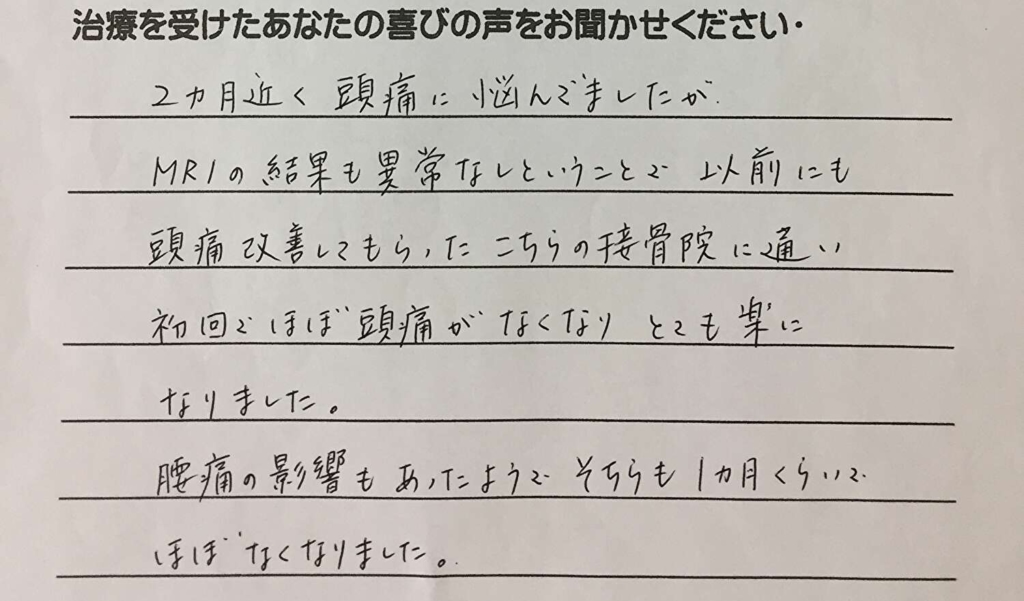 治療を受けたあなたの喜びの声をお聞かせください・
2カ月近く 頭痛に 悩んでましたが、
MRIの結果も異常なしということで 以前にも
頭痛改善してもらった こちらの接骨院に通い
初回でほぼ頭痛がなくなり とても楽に
なりました。
腰痛の影響もあったようで そちらも1カ月くらいで
ほぼなくなりました。